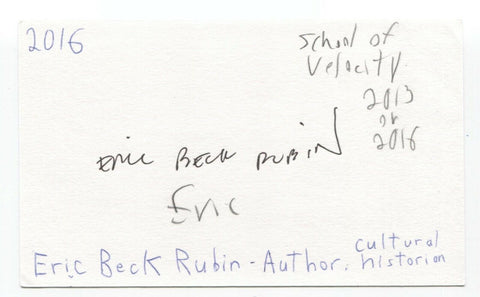 2016
School of
Velocity
2013
or
2016
ERIC BECK RUBIN
Eric
cultural
Eric Beck Rubin - Author, historian